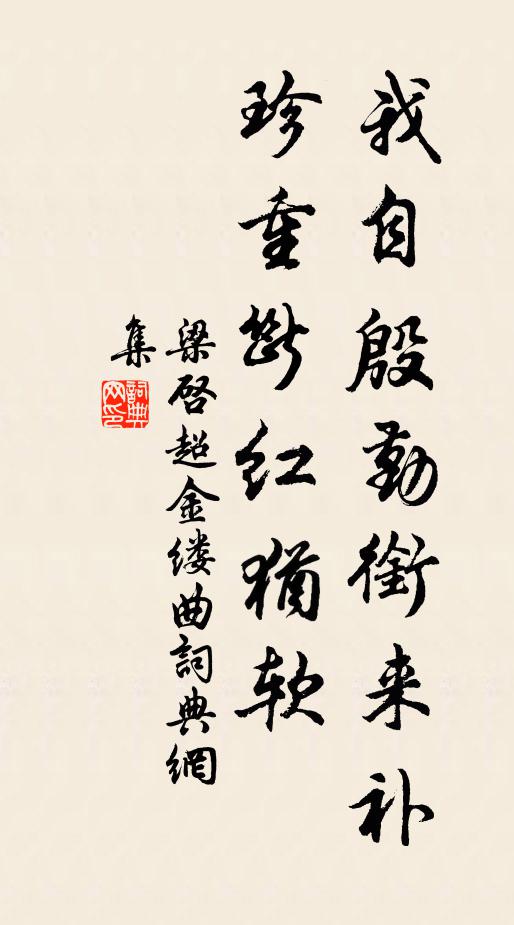 我自殷勤衔来补
珍重断红犹软
梁启超金缕曲詞典網
集
詞典
网印